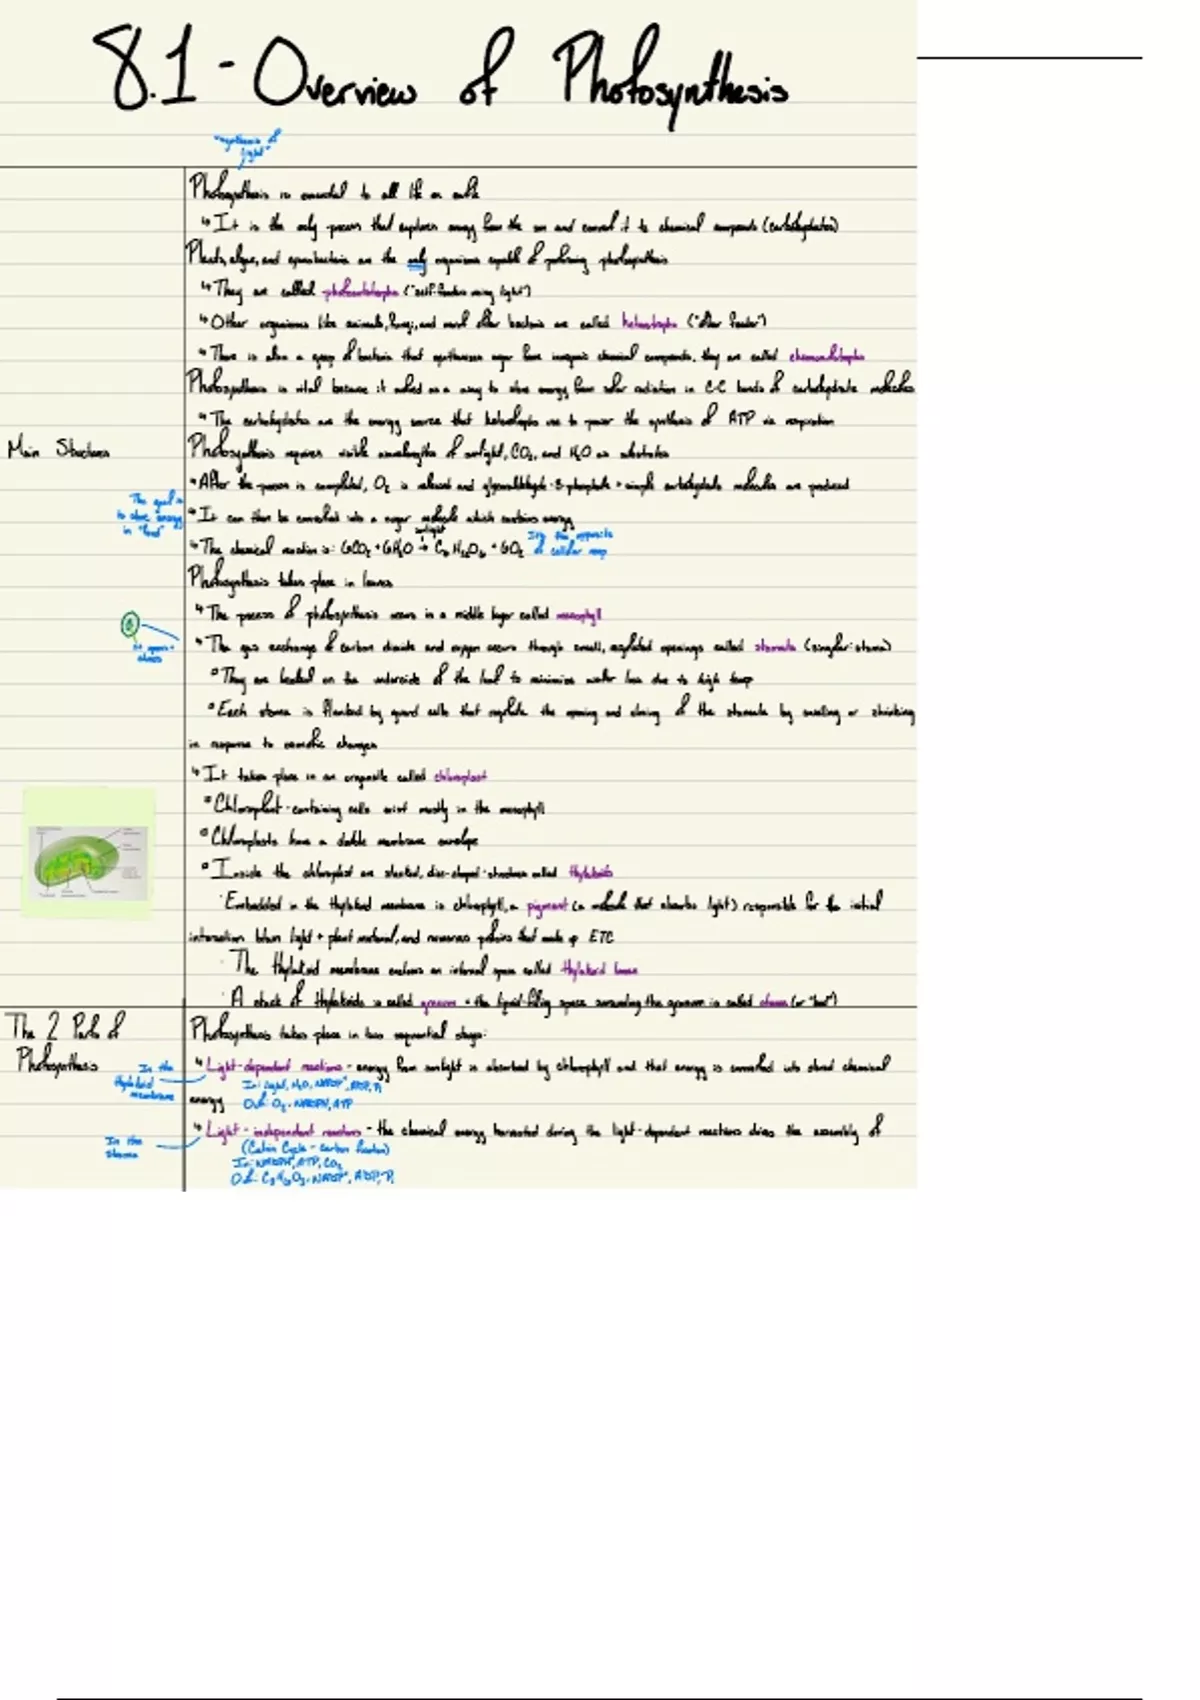 8.1 - Overview of Photosynthesis
"synthesis of
light"
Photosynthesis is essential to all life on earth
↳ It is the only process that captures energy from the sun and convert it to chemical compounds (carbohydrates)
Plants, algae, and cyanobacteria are the only organisms capable of performing photosynthesis
↳ They are called photoautotrophs ("self-feeders using light")
↳ Other organisms like animals, fungi, and most other bacteria are called heterotrophs ("other feeder")
↳ There is also a group of bacteria that synthesizes sugar from inorganic chemical compounds, they are called chemoautotrophs
Photosynthesis is vital because it evolved as a way to store energy from solar radiation in C-C bonds of carbohydrate molecules
↳ The carbohydrates are the energy source that heterotrophs use to power the synthesis of ATP via respiration
Main Structures
Photosynthesis requires visible wavelengths of sunlight, CO₂, and H₂O as substrates
↳ After the process is completed, O₂ is released and glyceraldehyde-3-phosphate + simple carbohydrate molecules are produced
The goal is
to store energy
in "food"
↳ It can then be converted into a sugar molecule which contains energy
sunlight
↳ The chemical reaction is: 6CO₂ + 6H₂O → C₆H₁₂O₆ + 6O₂
It's the opposite
of cellular resp
Photosynthesis takes place in leaves
↳ The process of photosynthesis occurs in a middle layer called mesophyll
↳ The gas exchange of carbon dioxide and oxygen occurs through small, regulated openings called stomata (singular: stoma)
▫ They are located on the underside of the leaf to minimize water loss due to high temp
▫ Each stoma is flanked by guard cells that regulate the opening and closing of the stomata by swelling or shrinking
in response to osmotic changes
↳ It takes place in an organelle called chloroplast
▫ Chloroplast-containing cells exist mostly in the mesophyll
▫ Chloroplasts have a double membrane envelope
▫ Inside the chloroplast are stacked, disc-shaped structures called thylakoids
· Embedded in the thylakoid membrane is chlorophyll, a pigment (a molecule that absorbs light) responsible for the initial
interaction btwn light + plant material, and numerous proteins that make up ETC
· The thylakoid membrane encloses an internal space called thylakoid lumen
· A stack of thylakoids is called granum + the liquid-filling space surrounding the granum is called stroma (or "bed")
The 2 Parts of
Photosynthesis
Photosynthesis takes place in two sequential stages:
In the
thylakoid
membrane
↳ Light-dependent reactions - energy from sunlight is absorbed by chlorophyll and that energy is converted into stored chemical
In: light, H₂O, NADP⁺, ADP, Pi
energy
Out: O₂, NADPH, ATP
In the
stroma
↳ Light-independent reactions - the chemical energy harvested during the light-dependent reactions drives the assembly of
(Calvin Cycle - carbon fixation)
In: NADPH, ATP, CO₂
Out: C₃H₆O₃, NADP⁺, ADP, Pi